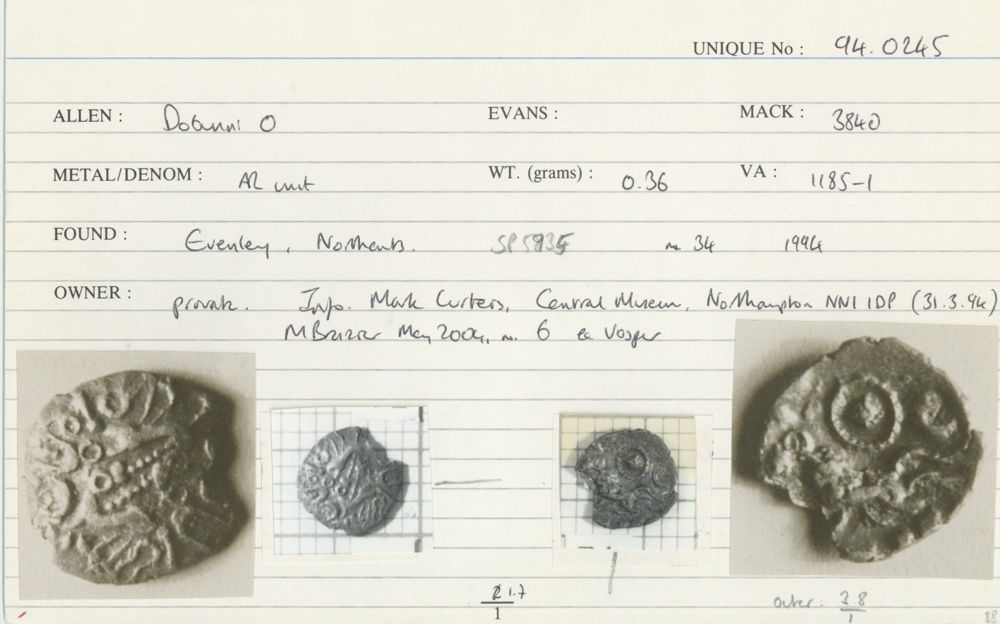 UNIQUE No : 94.0245
ALLEN : Dobunni O EVANS : MACK : 384d
METAL/DENOM : AR unit WT. (grams) : 0.36 VA : 1185-1
FOUND : Evenley, Northants. SP5835 no. 34 1994
OWNER : private. Info. Mark Curteis, Central Museum, Northampton NN1 1DP (31.3.94)
M Brazier May 2004, no. 6 ex Vosper
1.7
1
outer: 3.8
1
88